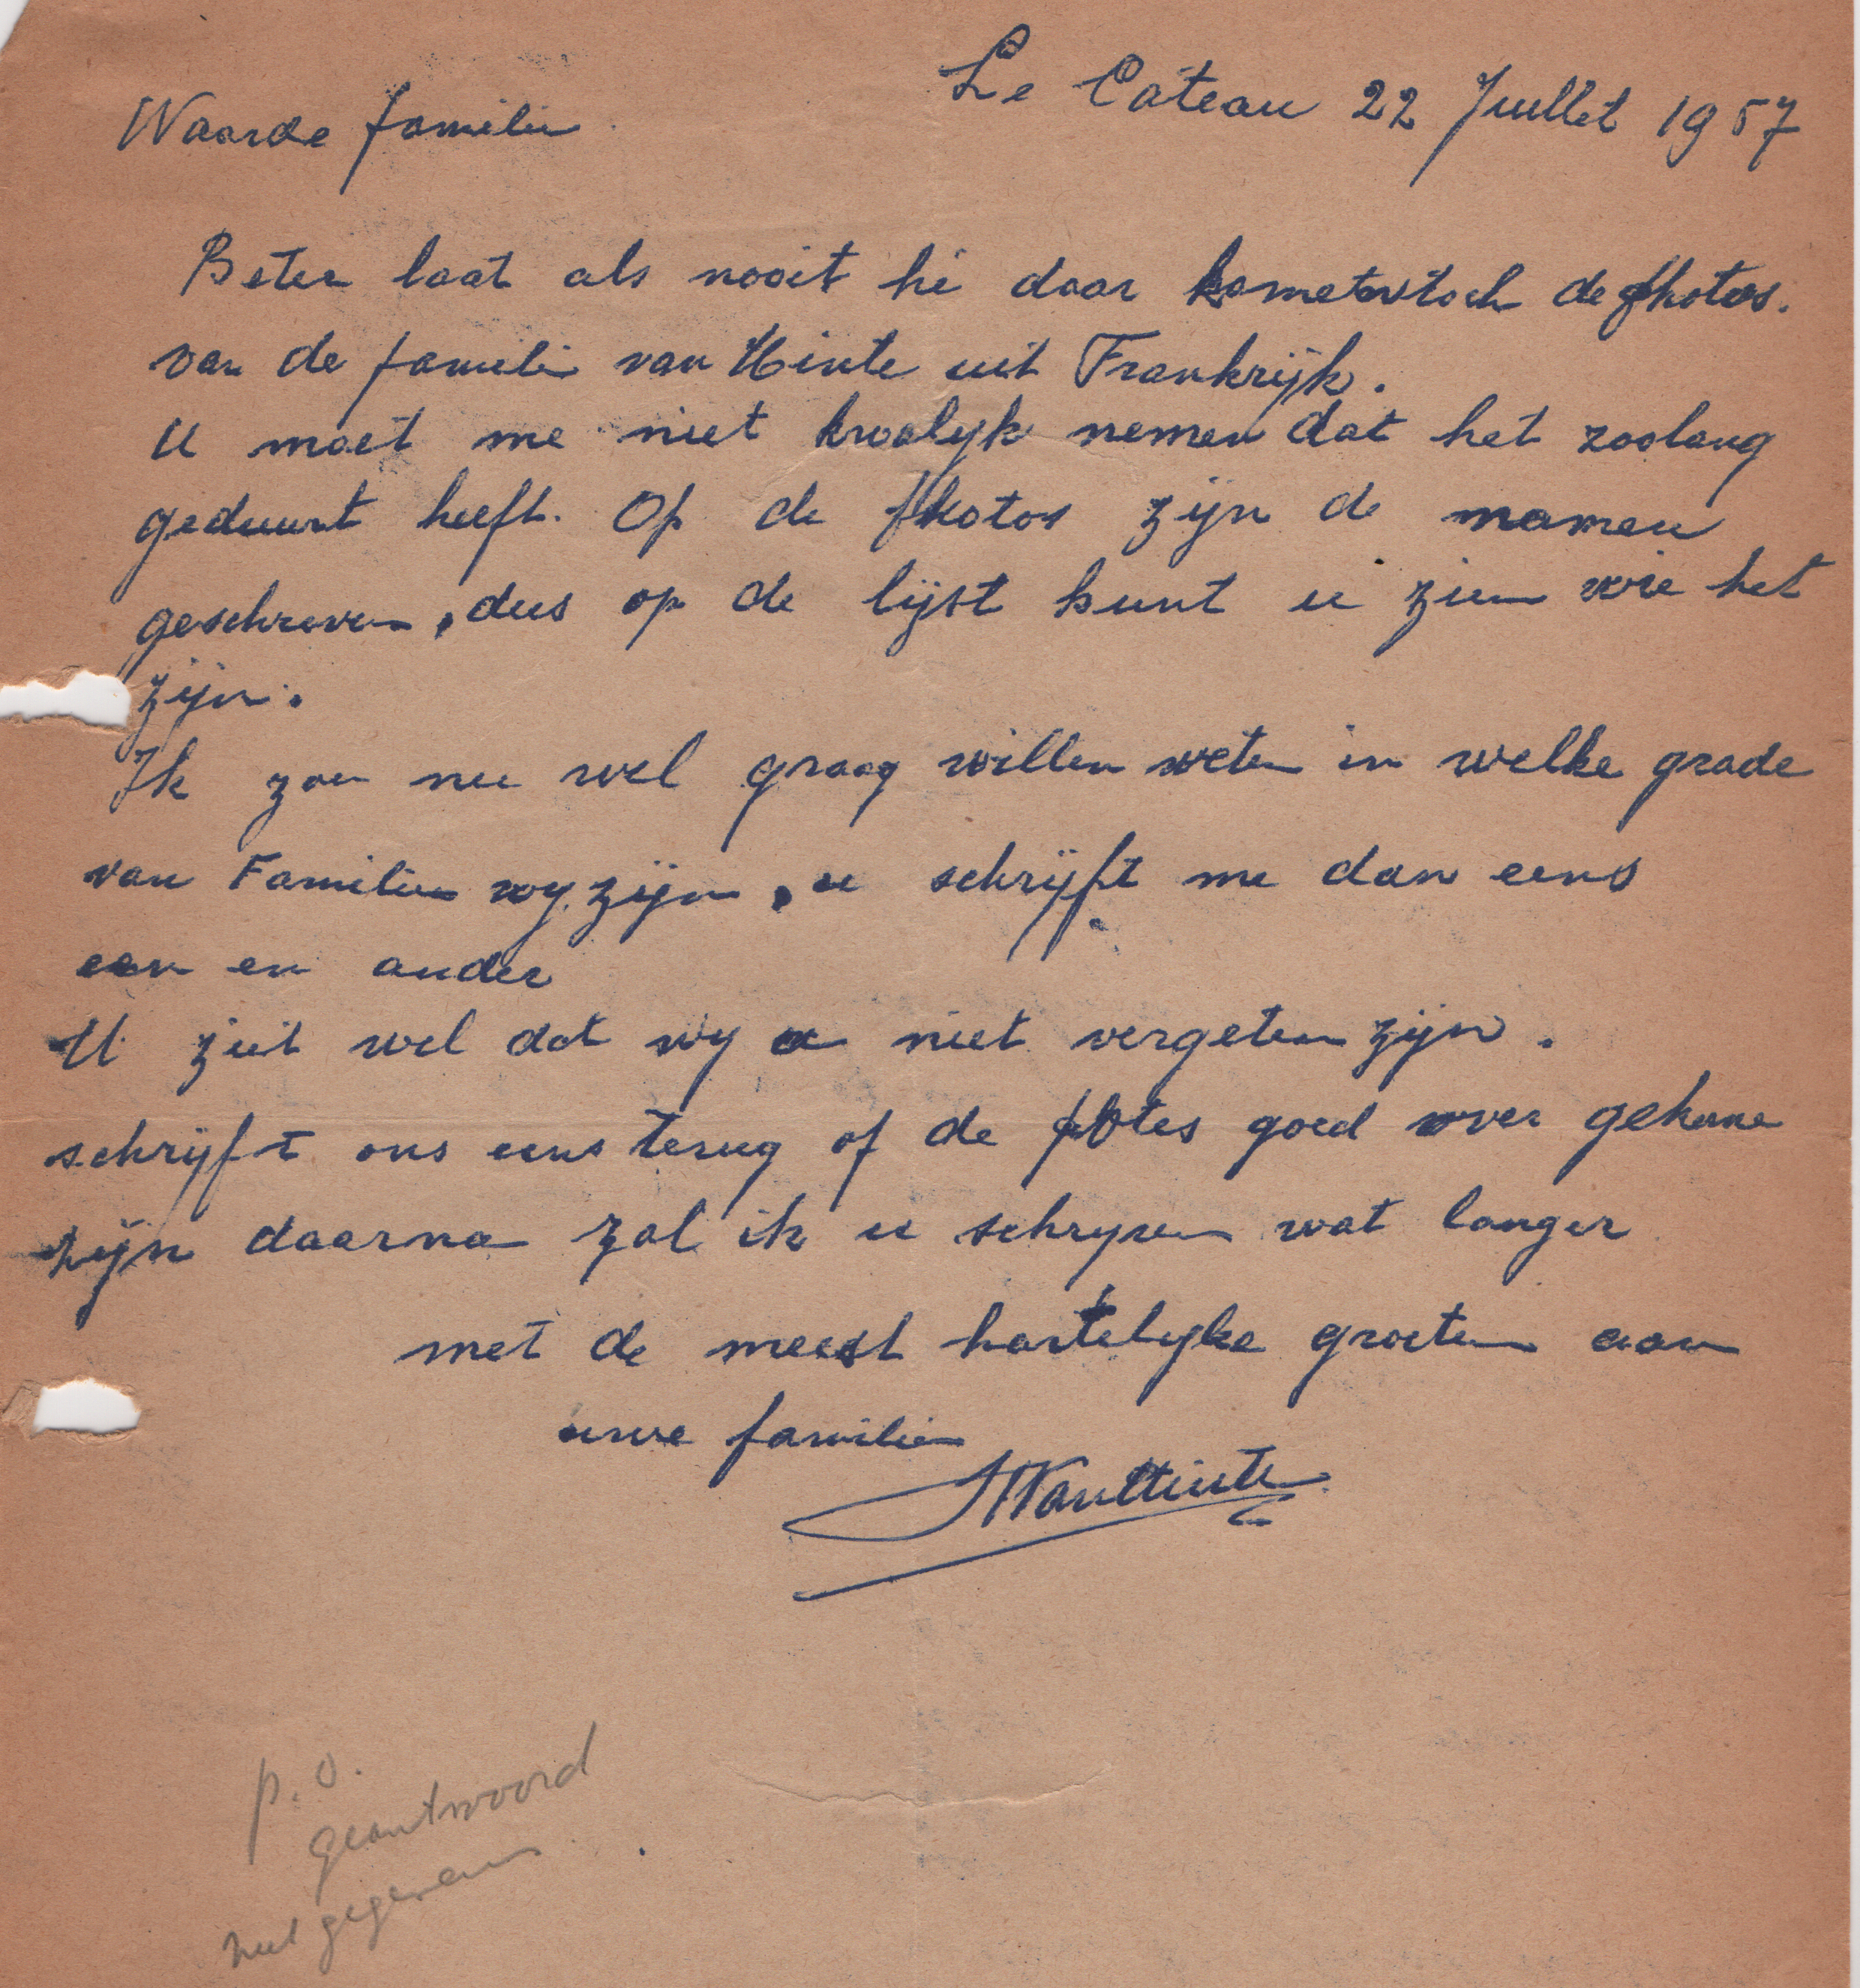 Le Câteau 22 Juillet 1957
Waarde familie
Beter laat als nooit hé daar komen toch de photos.
van de familie van Hinte uit Frankrijk.
U moet me niet kwalyk nemen dat het zoolang
geduurt heeft. Op de photos zijn de namen
geschreven, dus op de lijst kunt u zien wie het
zijn.
Ik zou nu wel graag willen weten in welke grade
van Familie wy zijn, u schrijft me dan eens
een en ander
U ziet wel dat wy u niet vergeten zijn.
schrijft ons eens terug of de fotos goed over gekome
zijn daarna zal ik u schryven wat langer
met de meest hartelyke groeten aan
uwe familie
VanHinte
p.o.
geantwoord
met gegevens